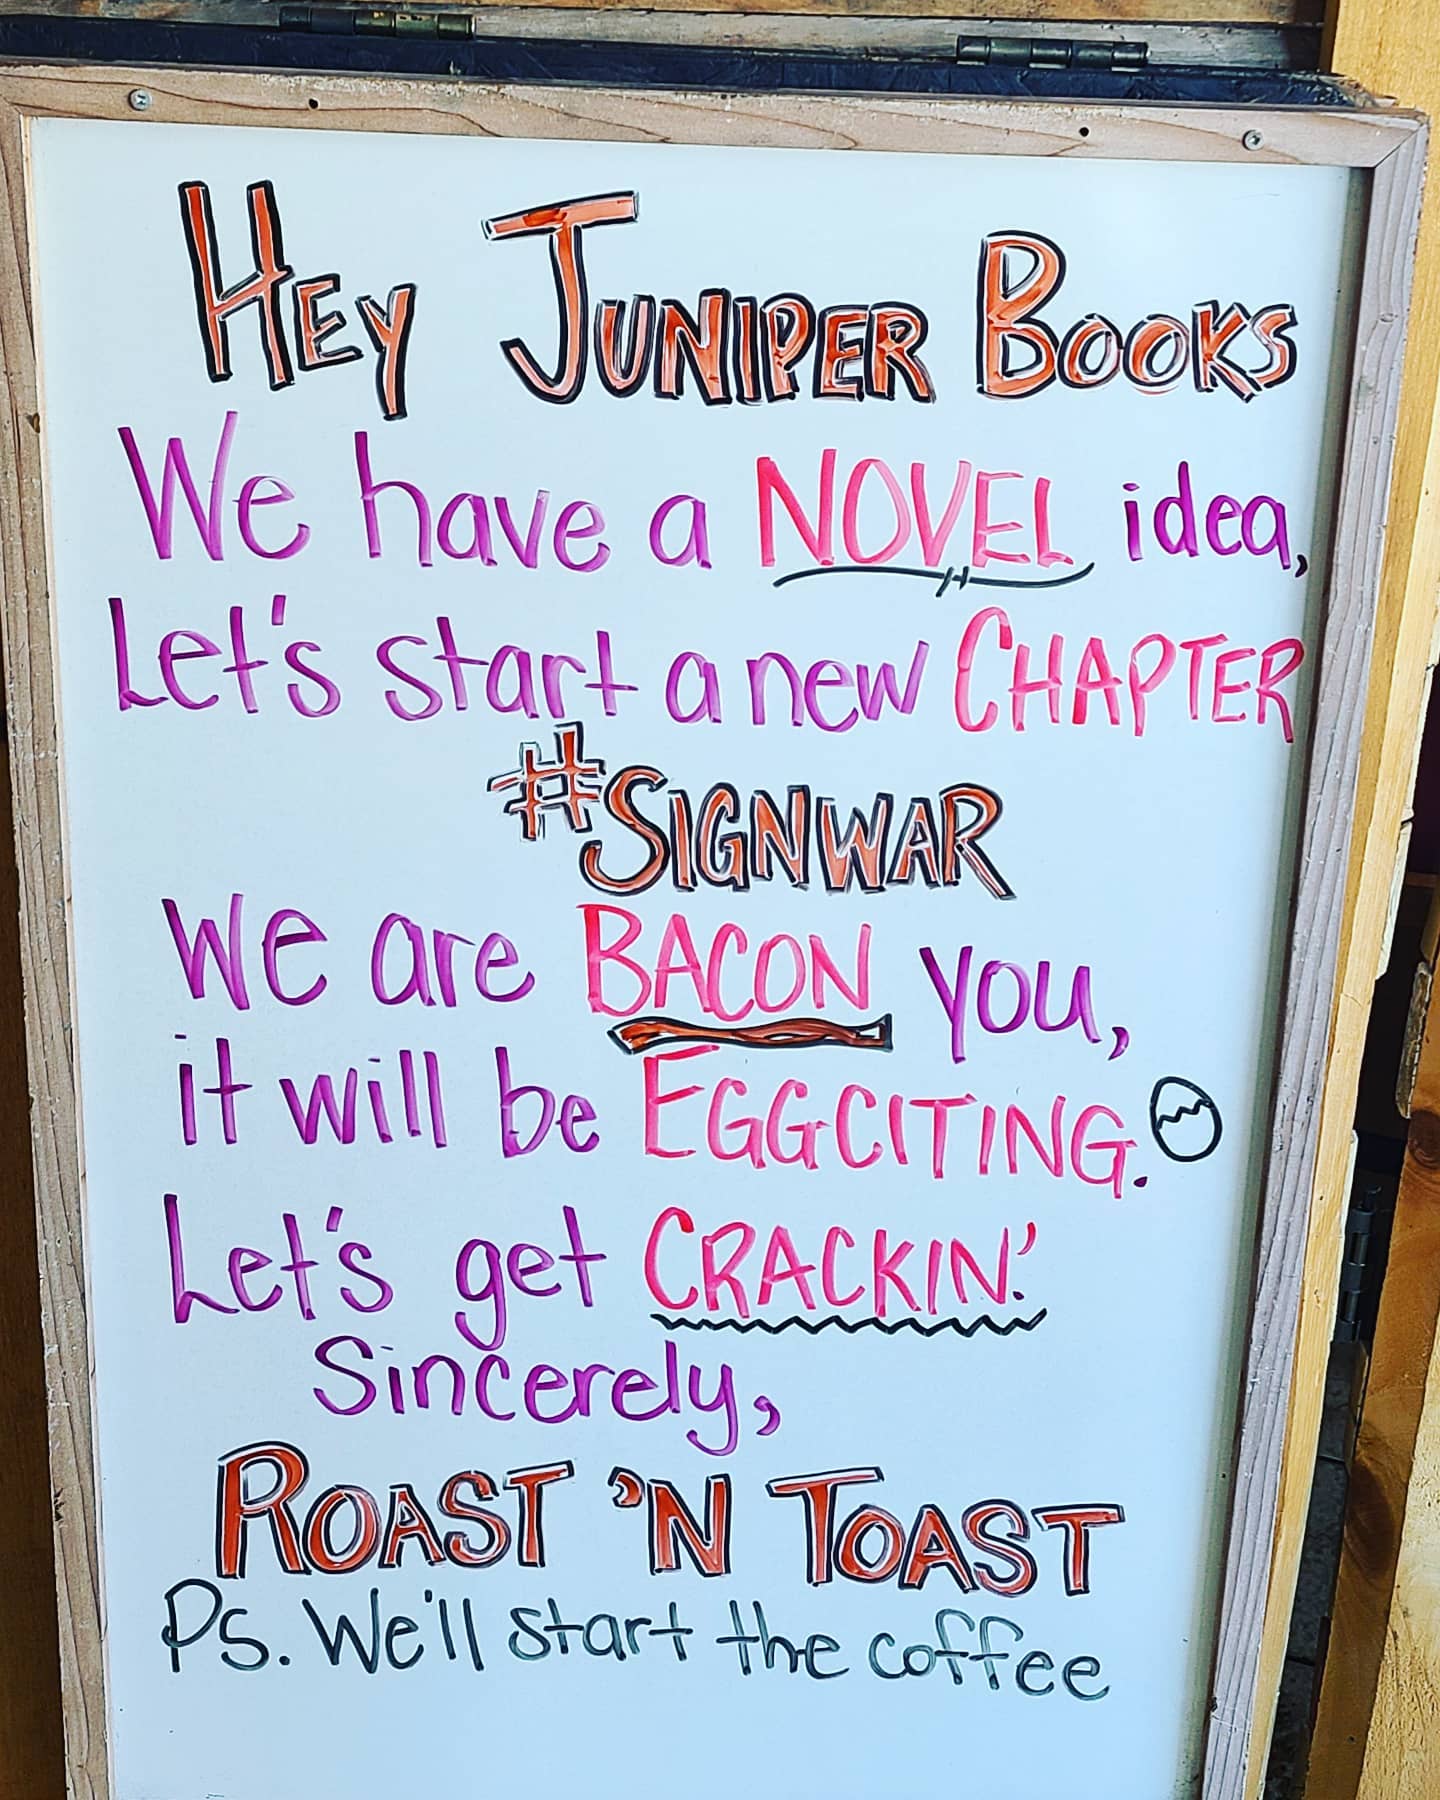 HEY JUNIPER BOOKS
We have a NOVEL idea,
Let's start a new CHAPTER
#SIGNWAR
We are BACON you,
it will be EGGCITING.
Let's get CRACKIN'.
Sincerely,
ROAST 'N TOAST
Ps. We'll start the coffee